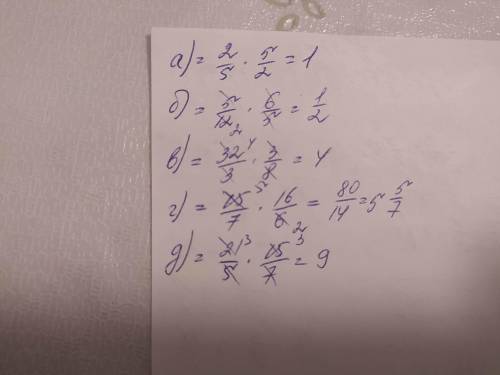 а) = 2/5 · 5/2 = 1
б) = 5/12 2 · 6/5 = 1/2
в) = 32 4/3 · 3/8 = 4
г) = 15 5/7 · 16/6 2 = 80/14 = 5 5/7
д) = 21 3/5 · 15 3/7 = 9